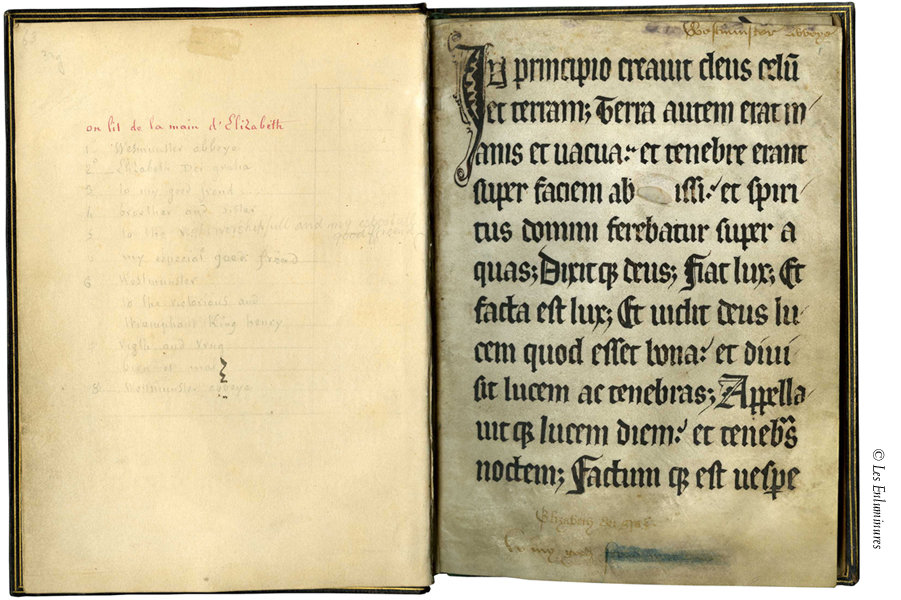 on lit de la main d'Elizabeth
1 Westmunster abbeye
2° Elizabeth Dei gratia
3 to my good frend
4 broether and sister
5 to the right worshepfull and my especiall
good frend
my especial good frend
6 Westmunster
to the victorious and
triumphant King henry
bien et mal
8 Westmunster abbeye
Westmunster abbeye
In principio creauit deus celū
et terram; Terra autem erat in/
anis et uacua: et tenebre erant
super faciem ab issi: et spiri
tus domini ferebatur super a
quas; Dixit qȝ deus; Fiat lux; Et
facta est lux; Et uidit deus lu/
cem quod esset bona: et diui
sit lucem ac tenebras; Appella/
uit qȝ lucem diem: et tenebᵃs
noctem; Factum qȝ est uespe
Elizabeth
to my
© Les Enluminures